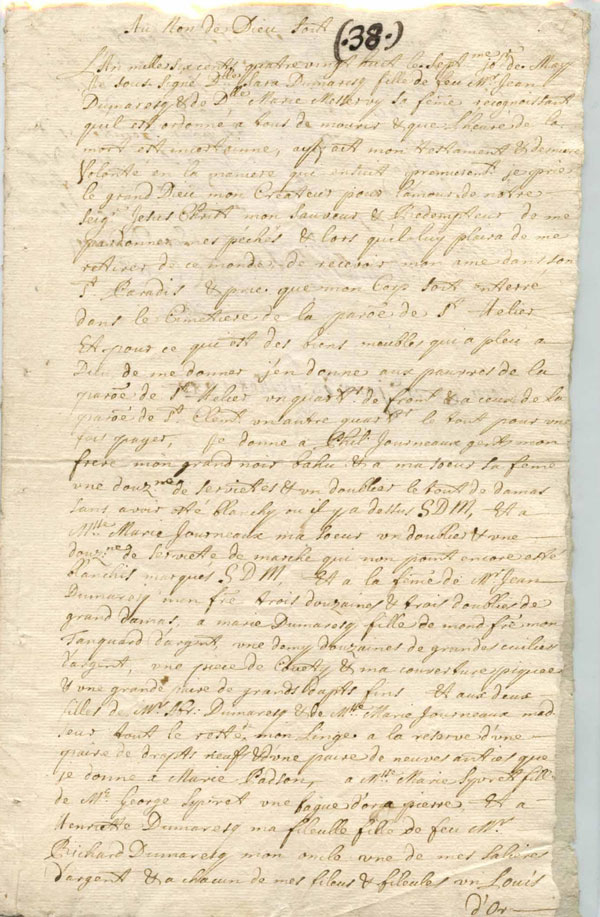 Au Non de Dieu soit
(.38.)
L'An mille six cents quatre vingt ouit le sept me jo. de May
Je sous signé Dlle Sara Dumaresq fille de feu Mr. Jean
Dumaresq & de Dlle Marie Messervy sa féme recognoissant
qu'il est ordonné a tous de mourir & que l'heure de la
mort est incertainne, ay fait mon testament & derniere
Volonte en la maniere qui ensuit premierent je prie
le grand Dieu mon Createur pour l'amour de notre
Seigr Jesus Christ mon Sauveur & Redempteur de me
pardonner mes péchés & lors qu'il luy plaira de me
retirer de ce monde de recevoir mon ame dans son
St. Paradis & puis que mon Cors soit enterré
dans le Cimetiere de la paroé de St. Helier
Et pour ce qui est des biens meubles qui a pleu a
Dieu de me donner j'en donne aux pauvres de la
paroé de St. Helier un quartr de froment & a ceux de la
paroé de St. Clemt un autre quartr le tout pour une
fois payer, je donne a Phil. Journeaux gentt mon
frere mon grand noir bahu & a ma soeur sa féme
une douzne de serviettes & un doublier le tout de damas
sans avoir esté blanchy ou il y a dessus SDM, Et a
Mlle Marie Journeaux ma soeur un doublier & une
douzne de serviette de marche qui non point encore esté
blanchis marqués SDM, Et a la féme de Mr Jean
Dumaresq mon fré trois douzaines & trois doubliers de
grand damas, a marie Dumaresq fille de mond fré mon
Tanquard d'argent, une demy douzaines de grandes cuiliers
d'argent, une piece de & ma couverture piquee
& une grande paire de grands drapts fins Et aux deux
filles de Mr. Dumaresq & de Mlle Marie Journeaux mad
seur tout le reste mon Linge a la reserve d'une
paire de drapts neufs & une paire de neuves que
je donne à Marie Badson, a Mlle Marie Syvret fille
de Mr George Syvret une bague d'or a pierre & a
Henriette Dumaresq ma fileulle fille de feu Mr.
Richard Dumaresq mon oncle une de mes salieres
d'argent & a chacun de mes fileus & fileules un Louis
d'Or